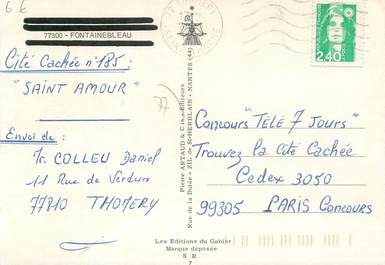 6 €
77300 - FONTAINEBLEAU
Cité Cachée n° 185 :
"SAINT AMOUR"
Envoi de :
Mr. COLLEU Daniel
11 Rue de Verdun
77810 THOMERY
77
Pierre ARTAUD & Cie - Editeurs
Rue de la Dutée - ZIL - St-HERBLAIN - NANTES (44)
2,40
Concours "TÉLÉ 7 Jours"
Trouvez la Cité Cachée
Cedex 3050
99305 PARIS Concours
Les Editions du Gabier
Marque déposée
S R
7